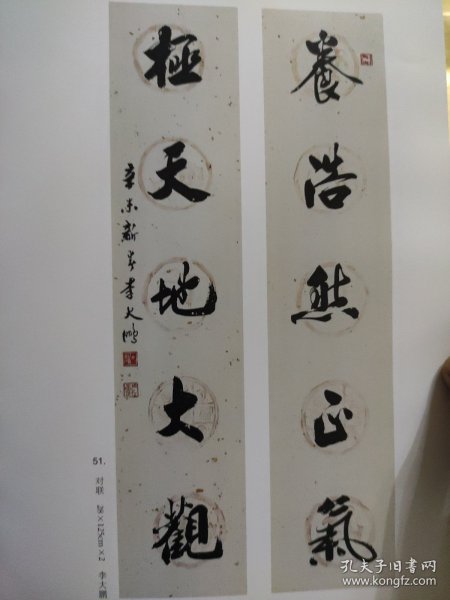 養浩然正氣
極天地大觀
辛未新春李大鵬
51.
对联 28×125cm×2 李大鹏
孔夫子旧书网